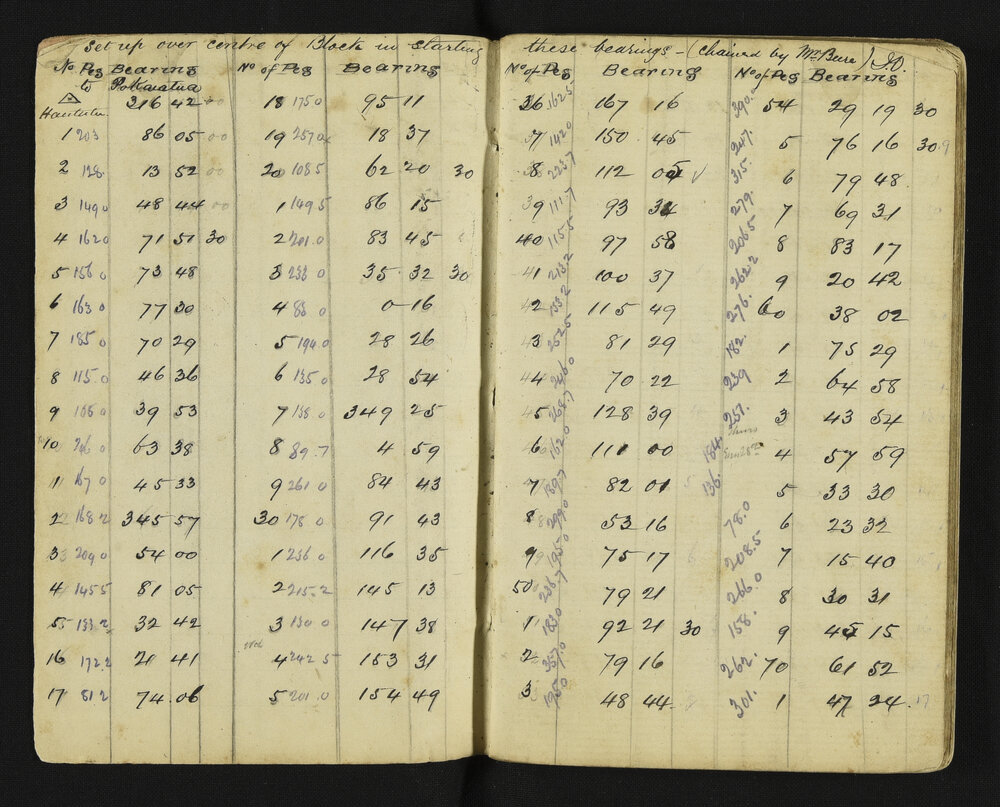 Set up over centre of Block in starting these bearings - (chained by Mr
No Peg Bearing No of Peg Bearing
to
216 42 00 18 1750 95 11
1 203 86 05 00 19 18 37
2 128 13 52 00 20 108 5 62 20 30
3 149 0 48 44 00 1 149 5 86 15
4 162 0 71 51 30 2 201.0 83 45
5 156 0 73 48 3 238 0 35 32 30
6 163 0 77 30 4 88 0 0 16
7 185 0 70 29 5 194.0 28 26
8 115.0 46 36 6 135 0 28 54
9 39 53 7 138 0 349 25
10 63 38 8 89.7 4 59
11 167 0 45 33 9 261 0 84 43
2 168 2 345 57 30 178 0 91 43
3 209 0 54 00 1 236 0 116 35
4 145 5 81 05 2 215.2 145 13
5 133 2 32 42 3 130 0 147 38
16 172 2 21 41 4 242 5 153 31
17 81 2 74 06 5 201.0 154 49
No of Peg Bearing No of Peg Bearing
36 162.5 167 16 390.0 54 29 19 30
7 142.0 150 45 247. 5 76 16 30
8 223.7 112 05 315. 6 79 48
39 111.7 93 34 279. 7 69 31
40 115.5 97 58 206.5 8 83 17
41 213.2 100 37 262.2 9 20 42
42 133.2 115 49 276. 60 38 02
43 252.5 81 29 182. 1 75 29
44 246.0 70 22 239 2 64 58
45 268.7 128 39 251. 3 43 54
6 162.0 111 00 184. 4 57 59
7 189.7 82 01 136. 5 33 30
8 299.0 53 16 78.0 6 23 32
9 195.0 75 17 208.5 7 15 40
50 236.7 79 21 266.0 8 30 31
1 183.0 92 21 30 158. 9 45 15
2 357.0 79 16 262. 70 61 52
3 195.0 48 44 301. 1 47 24